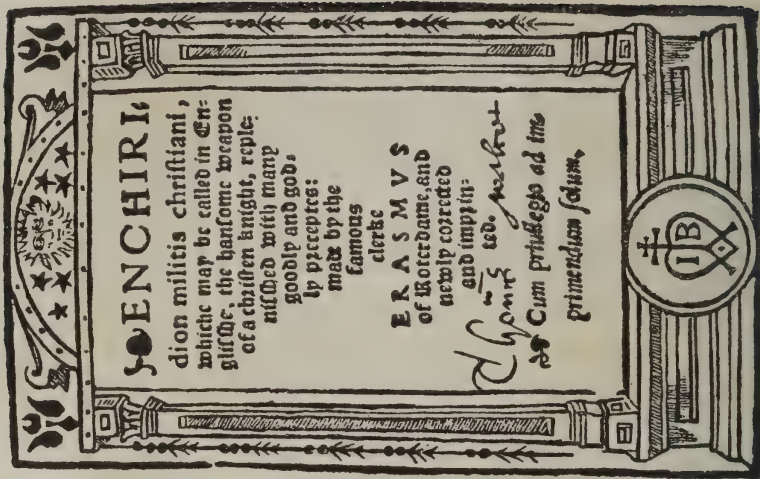 ENCHIRI⸗
dion militis chriſtiani,
whiche may be called in En⸗
gliſſhe, the hanſome weapon
of a chriſten knight, reple⸗
niſſhed with many
goodly and god⸗
ly preceptes:
made by the
famous
clerke
ERASMVS
of Roterdame, and
newly corrected
and imprin⸗
ted.
Cum priuilegio ad im⸗
primendum ſolum.
I B